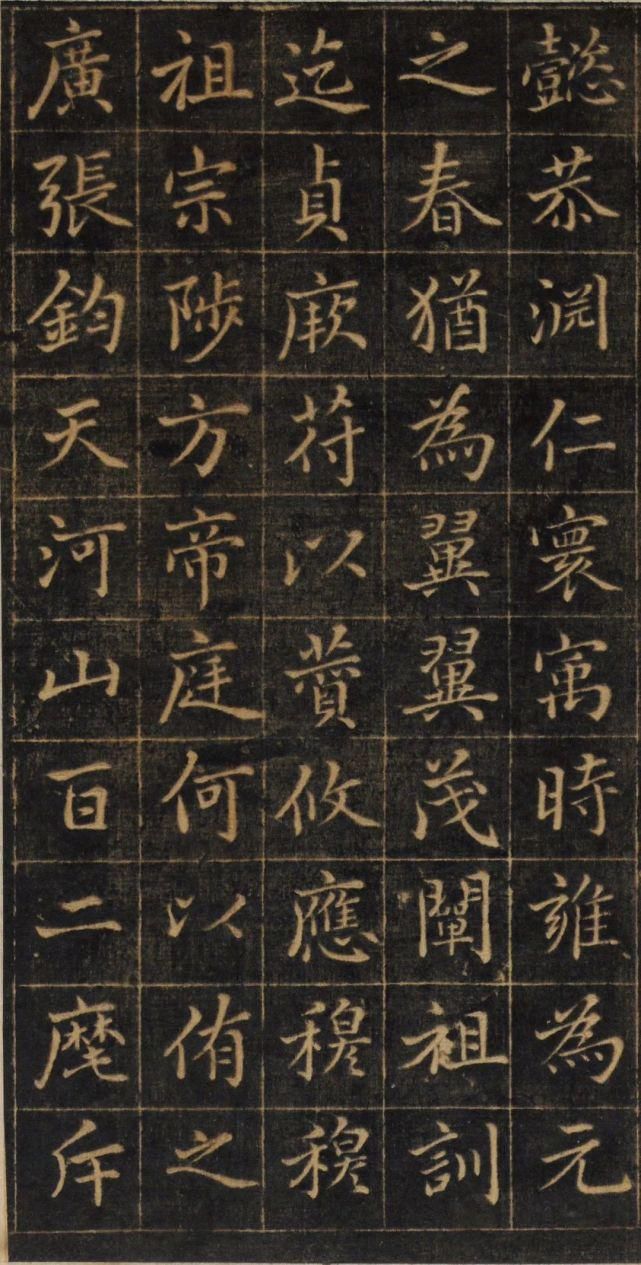 懿恭淵仁寰寓時雍為元
之春猶為翼翼茂闡祖訓
迄貞厥符以蕢攸應穆穆
祖宗陟方帝庭何以侑之
廣張鈞天河山百二麾斥